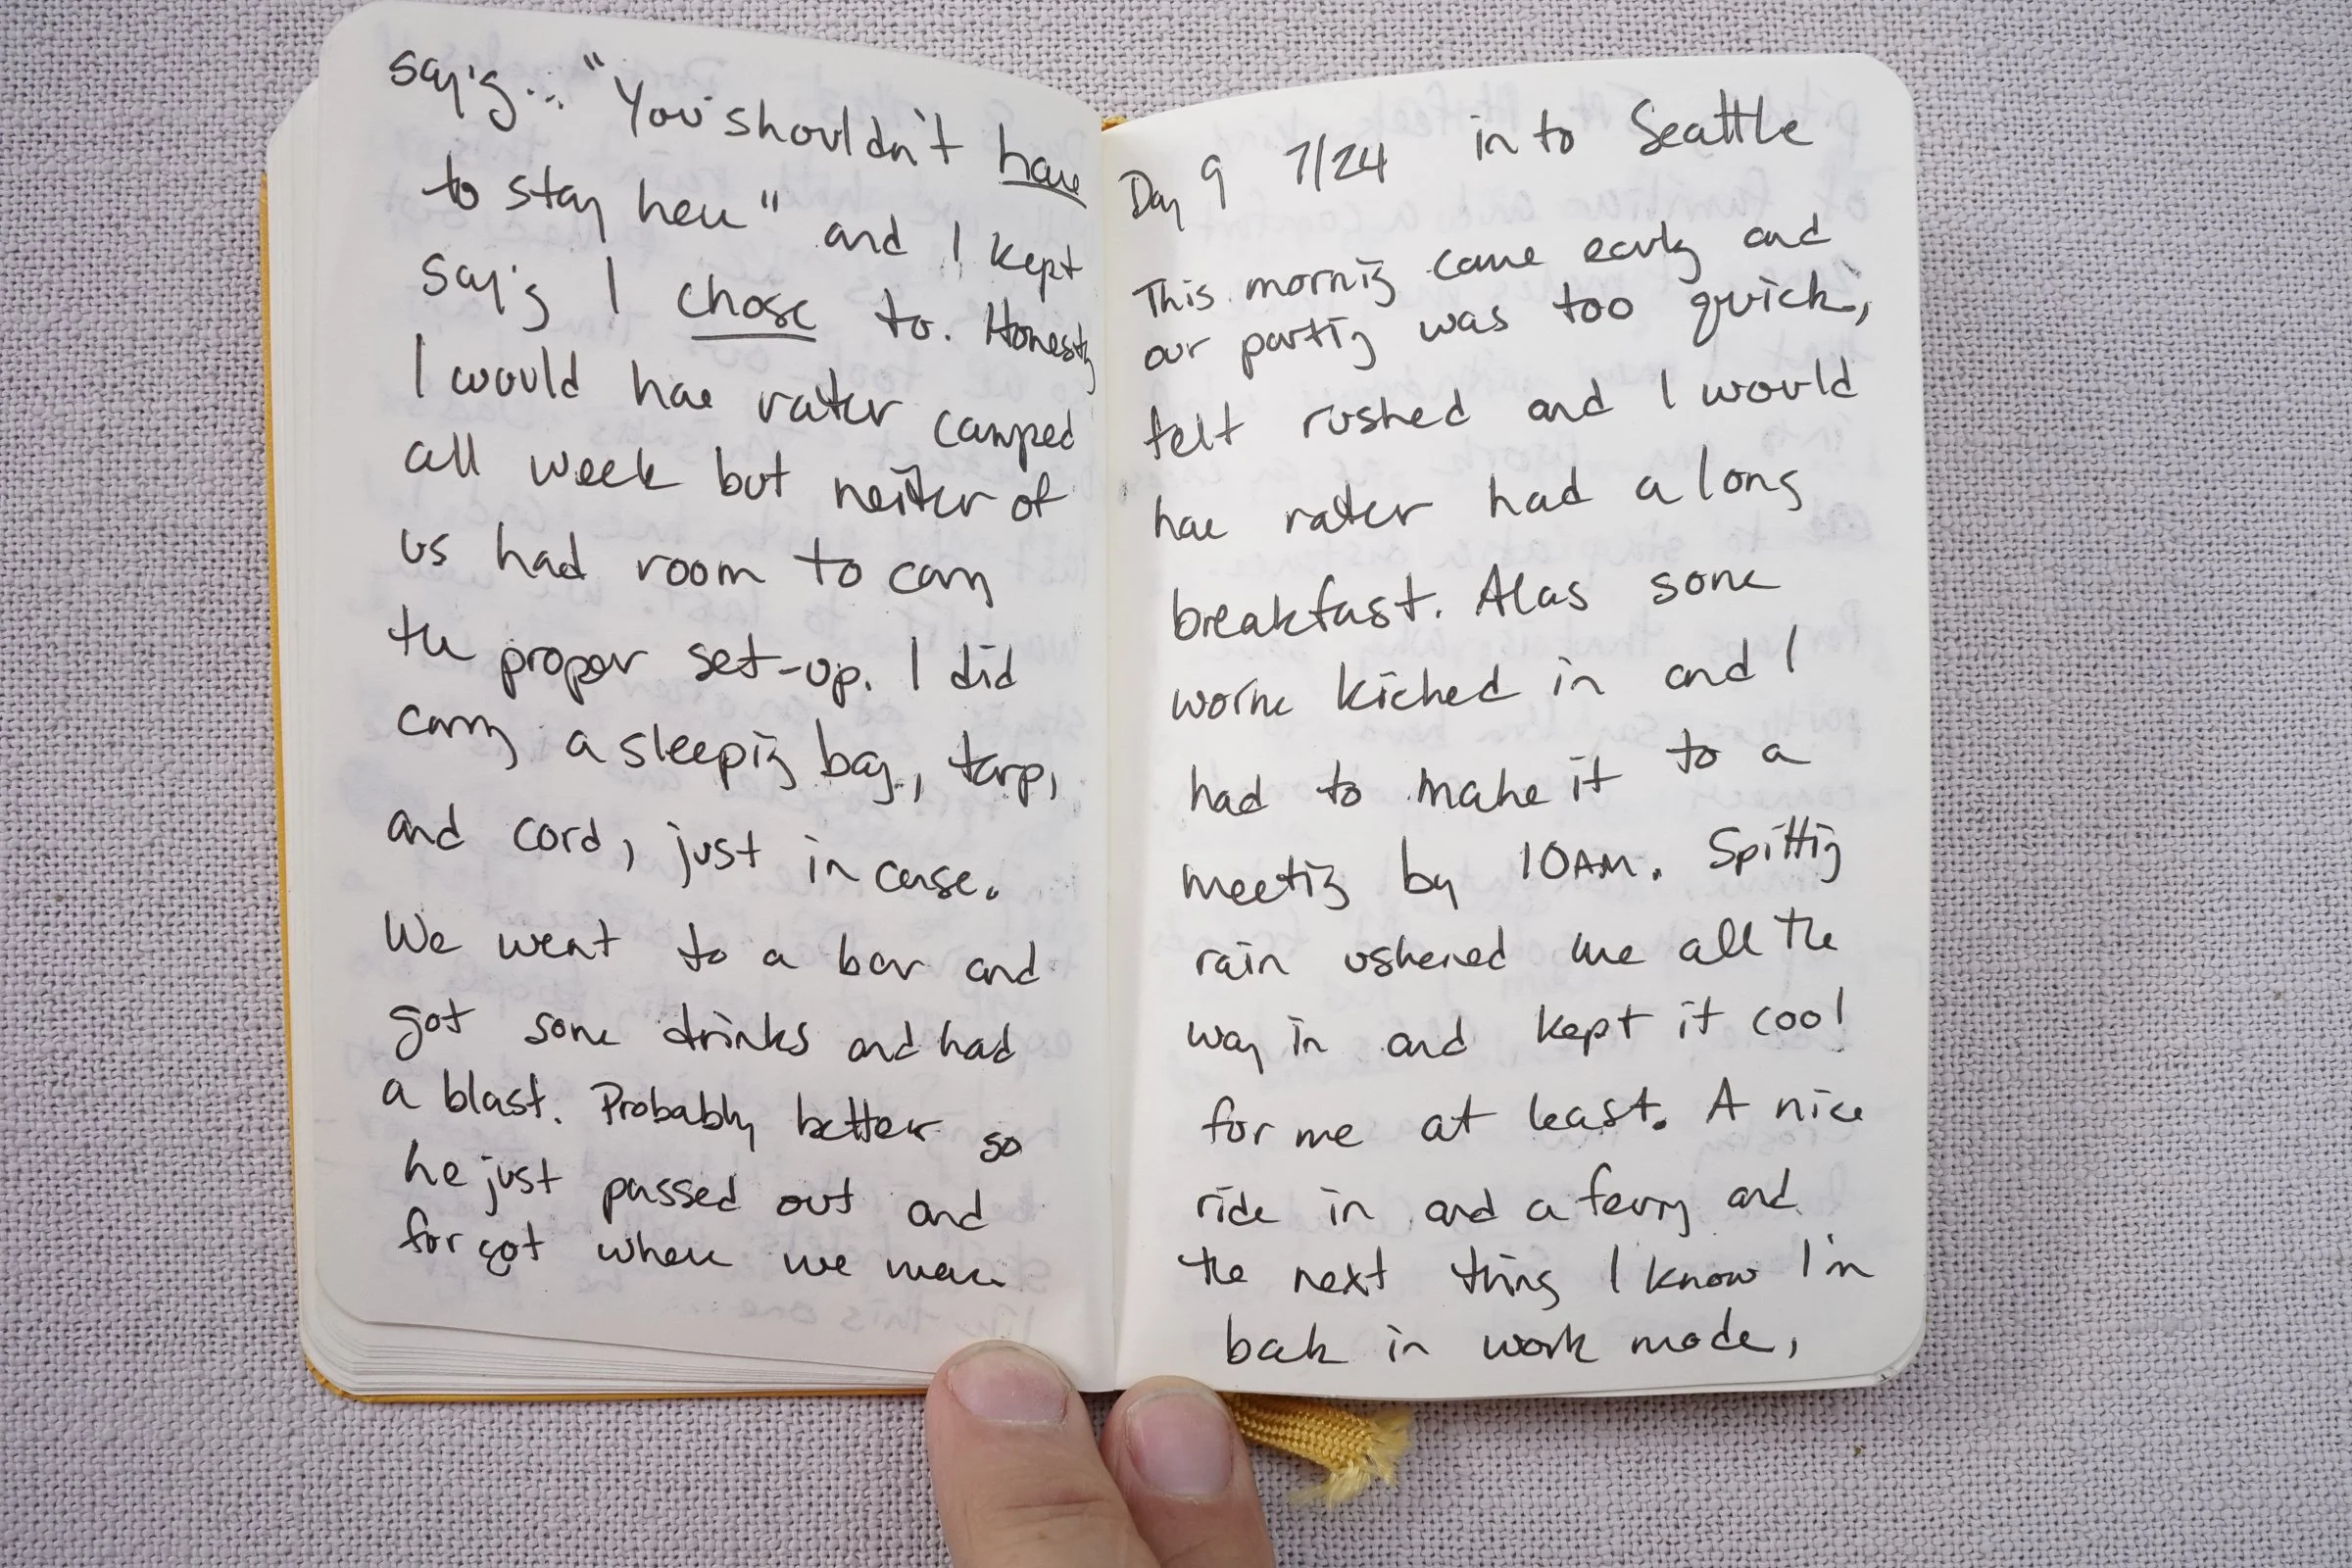 saying... "You shouldn't have
to stay here" and I kept
saying I chose to. Honestly
I would have rather camped
all week but neither of
us had room to carry
the proper set-up. I did
carry a sleeping bag, tarp,
and cord, just in case.
We went to a bar and
got some drinks and had
a blast. Probably better so
he just passed out and
forgot where we were
Day 9 7/24 in to Seattle
This morning came early and
our parting was too quick,
felt rushed and I would
have rather had a long
breakfast. Alas some
work kicked in and I
had to make it to a
meeting by 10AM. Spitting
rain ushered me all the
way in and kept it cool
for me at least. A nice
ride in and a ferry and
the next thing I know I'm
back in work mode,